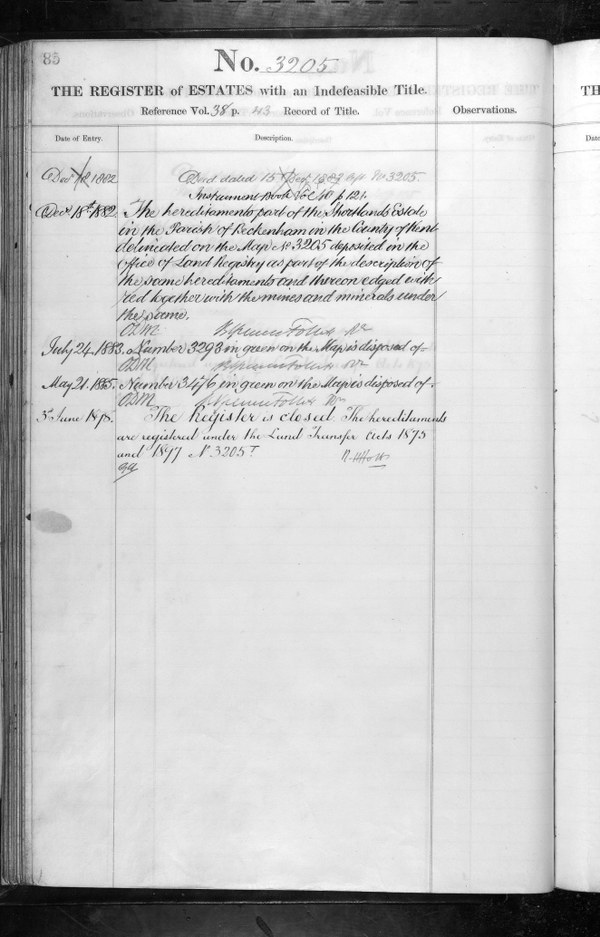 85
No. 3205
THE REGISTER of ESTATES with an Indefeasible Title.
Reference Vol. 38 p. 43 Record of Title.
Observations.
Date of Entry.
Description.
Decr 18 1882
Deed dated 15 Decr 1882 No 3205
Instrument Book Vol 40 p 121.
Decr 18th 1882. The hereditaments part of the Shortlands Estate
in the Parish of Beckenham in the County of Kent
delineated on the Map No 3205 deposited in the
Office of Land Registry as part of the description of
the same hereditaments and thereon edged with
red together with the mines and minerals under
the same.
Follett
July 24. 1883. Number 3293 in green on the Map is disposed of-
Follett
May 21. 1885. Number 3476 in green on the Map is disposed of-
Follett
3d June 1898. The Register is closed The hereditaments
are registered under the Land Transfer Acts 1875
and 1897 No 3205T
TH
Date